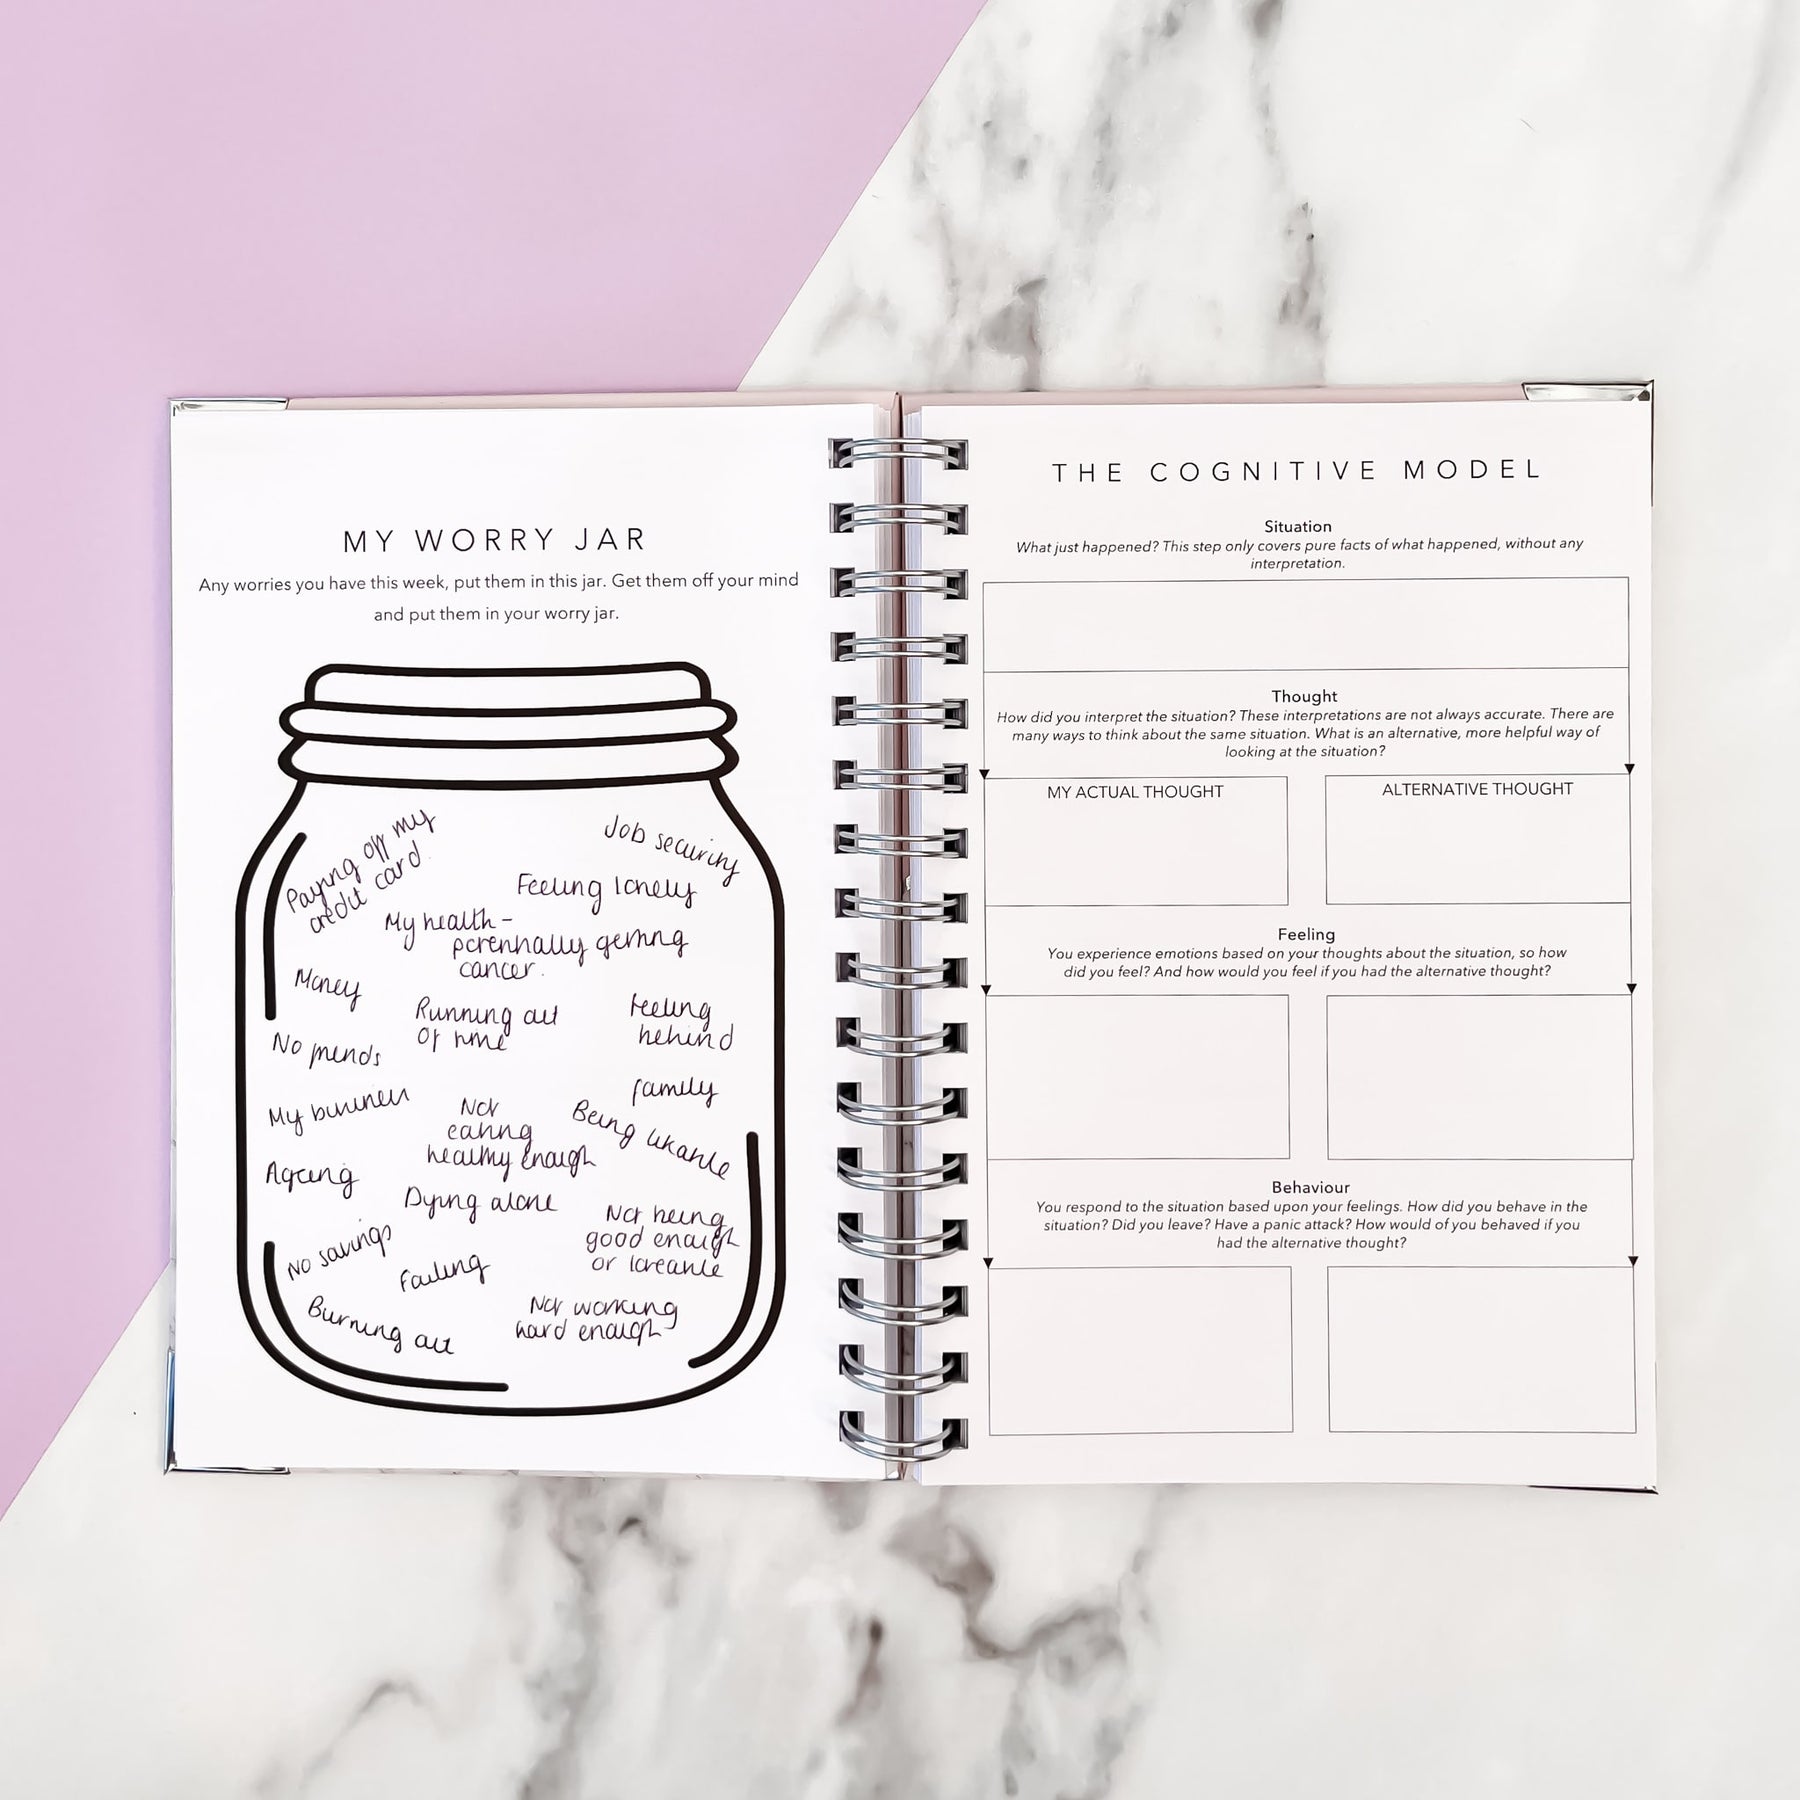 MY WORRY JAR
Any worries you have this week, put them in this jar. Get them off your mind
and put them in your worry jar.
Paying off my
credit card.
Job security
Feeling lonely
My health -
potentially getting
cancer.
Money
Running out
of time
Feeling
behind
No friends
family
My business
Not
eating
healthy enough
Being likable
Ageing
Dying alone
Not being
good enough
or loveable
No savings
Failing
Burning out
Not working
hard enough
THE COGNITIVE MODEL
Situation
What just happened? This step only covers pure facts of what happened, without any
interpretation.
Thought
How did you interpret the situation? These interpretations are not always accurate. There are
many ways to think about the same situation. What is an alternative, more helpful way of
looking at the situation?
MY ACTUAL THOUGHT
ALTERNATIVE THOUGHT
Feeling
You experience emotions based on your thoughts about the situation, so how
did you feel? And how would you feel if you had the alternative thought?
Behaviour
You respond to the situation based upon your feelings. How did you behave in the
situation? Did you leave? Have a panic attack? How would of you behaved if you
had the alternative thought?